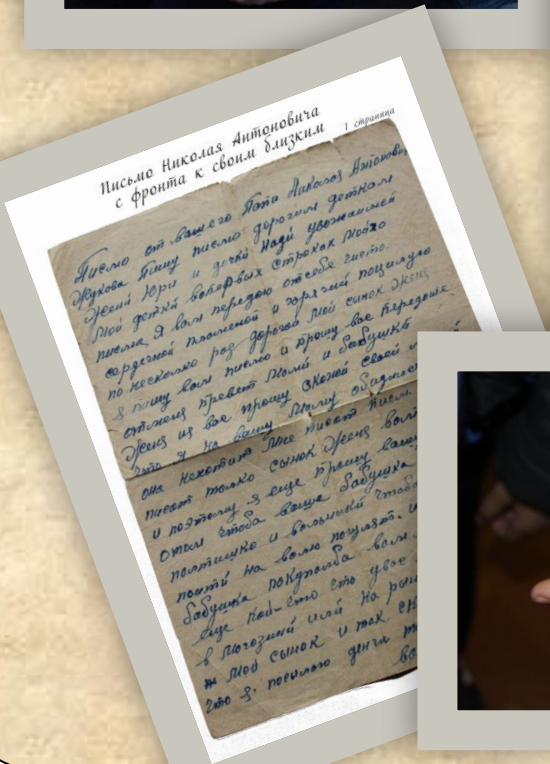 Письмо Николая Антоновича
с фронта к своим близким
1 страница
Писмо от вашего Папи Николая Антонович
Жукова Пишу писмо дорогим деткам
Жени Юри и дочки Нади уважаемые
Мои детки вопервых строках моего
писма. Я вам передаю отсебе чисто.
сердечной пламеной и горячий поцилую
по несколко раз дорогой мой сынок Жень
Я пишу вам писмо и прошу вас передайте
отменя превет мами и бабушке
Жень из вас прошу скожи своей
что я на вашу маму обиделся
она нехотит мне писат писм
писат толко сынок Жень
и поэтому я еще прошу вашу
отом чтоба ваша бабушка
полтишко и чтоба
поити на волю погулят. и
бабушка покупалба вам
еще кой-что сто увас
в могозини или на рын
мой сынок и так
что я. посылаю денги